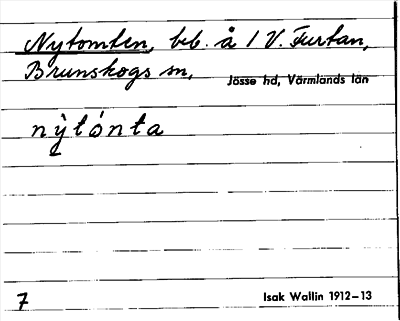 Nytomten, beb. å 1 V. Furtan,
Brunskogs sn,
Jösse hd, Värmlands län
nỳtónta
7
Isak Wallin 1912–13